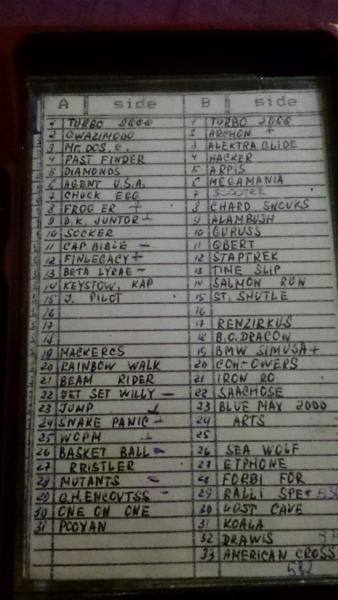 A side
1 TURBO 2000
2 QWAZIMODO
3 Mr. DOS. C.
4 PAST FINDER
5 DIAMONDS
6 AGENT U.S.A.
7 CHUCK EGG
8 FROG ER +
9 D.K. JUNTOR
10 SOCKER
11 CAP. BIBLE -
12 FINLEGACY +
13 BETA LYRAE -
14 KEYSTOW, KAP
15 J. PILOT
16
17
18
19 MACKERCS
20 RAINBOW WALK
21 BEAM RIDER
22 JET SET WILLY -
23 JUMP
24 SNAKE PANIC
25 WOPM
26 BASKET BALL
27 RRISTLER
28 MUTANTS -
29 G.H.ENCOVTSS
30 ONE ON ONE
31 POOYAN
B side
1 TURBO 2000
2 ARCHON +
3 ALEKTRA GLIDE
4 HACKER
5 ARPIS
6 MEGAMANIA
7 SCOOTER
8 CHARD SNOUKS
9 ALAMBUSH
10 GURUSS
11 QBERT
12 STAPTREK
13 TIME SLIP
14 SALMON RUN
15 ST. SHUTLE
16
17 RENZIRKUS
18 B.C. DRACON
19 BMW SIMUSA +
20 COH-OWERS
21 IRON RO
22 SAACHOSE
23 BLUE MAX 2000
24 ARTS
25
26 SEA WOLF
27 ETPHONE
28 FORBI FOR
29 RALLI SPE+
30 LOST CAVE
31 KOALA
32 DRAWIS
33 AMERICAN CROSS